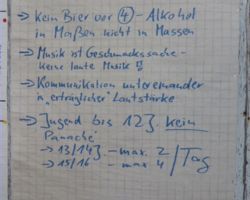 → Kein Bier vor ④ - Alkohol
in Maßen nicht in Massen
→ Musik ist Geschmackssache -
keine laute Musik !!
→ Kommunikation untereinander
in "erträglicher" Lautstärke
→ Jugend bis 12J kein
Panaché
→ 13/14J - max. 2
→ 15/16 - max 4 / Tag